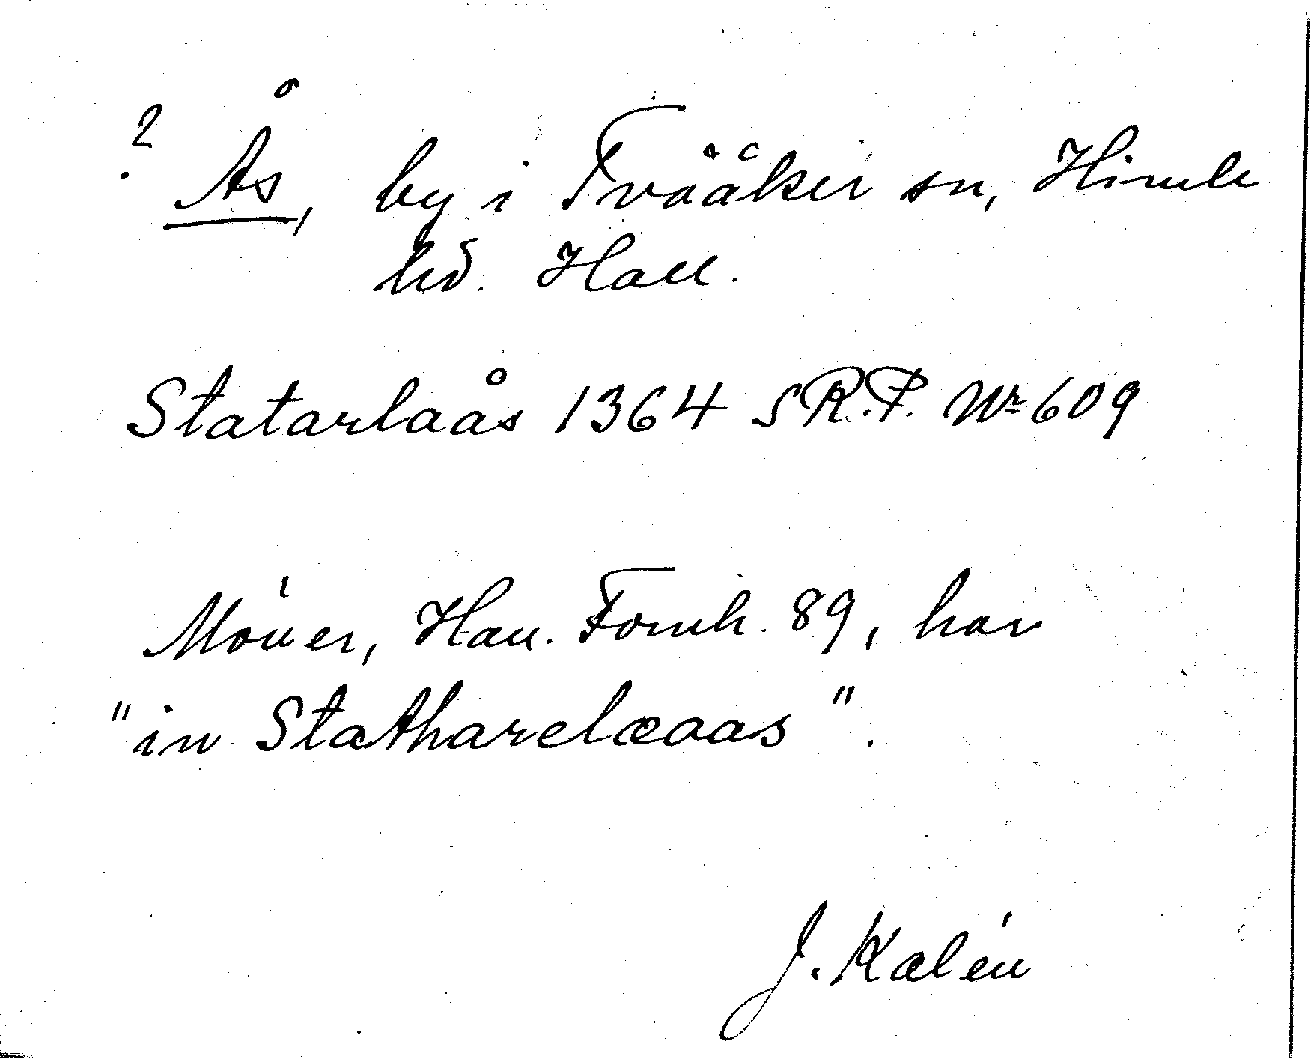 ? Ås, by i Tvååker sn, Himle
hd. Hall.
Statarlaås 1364 SR.P. Nr 609
Möller, Hall. Fornh. 89, har
"in Statharelæaas".
J. Kalén